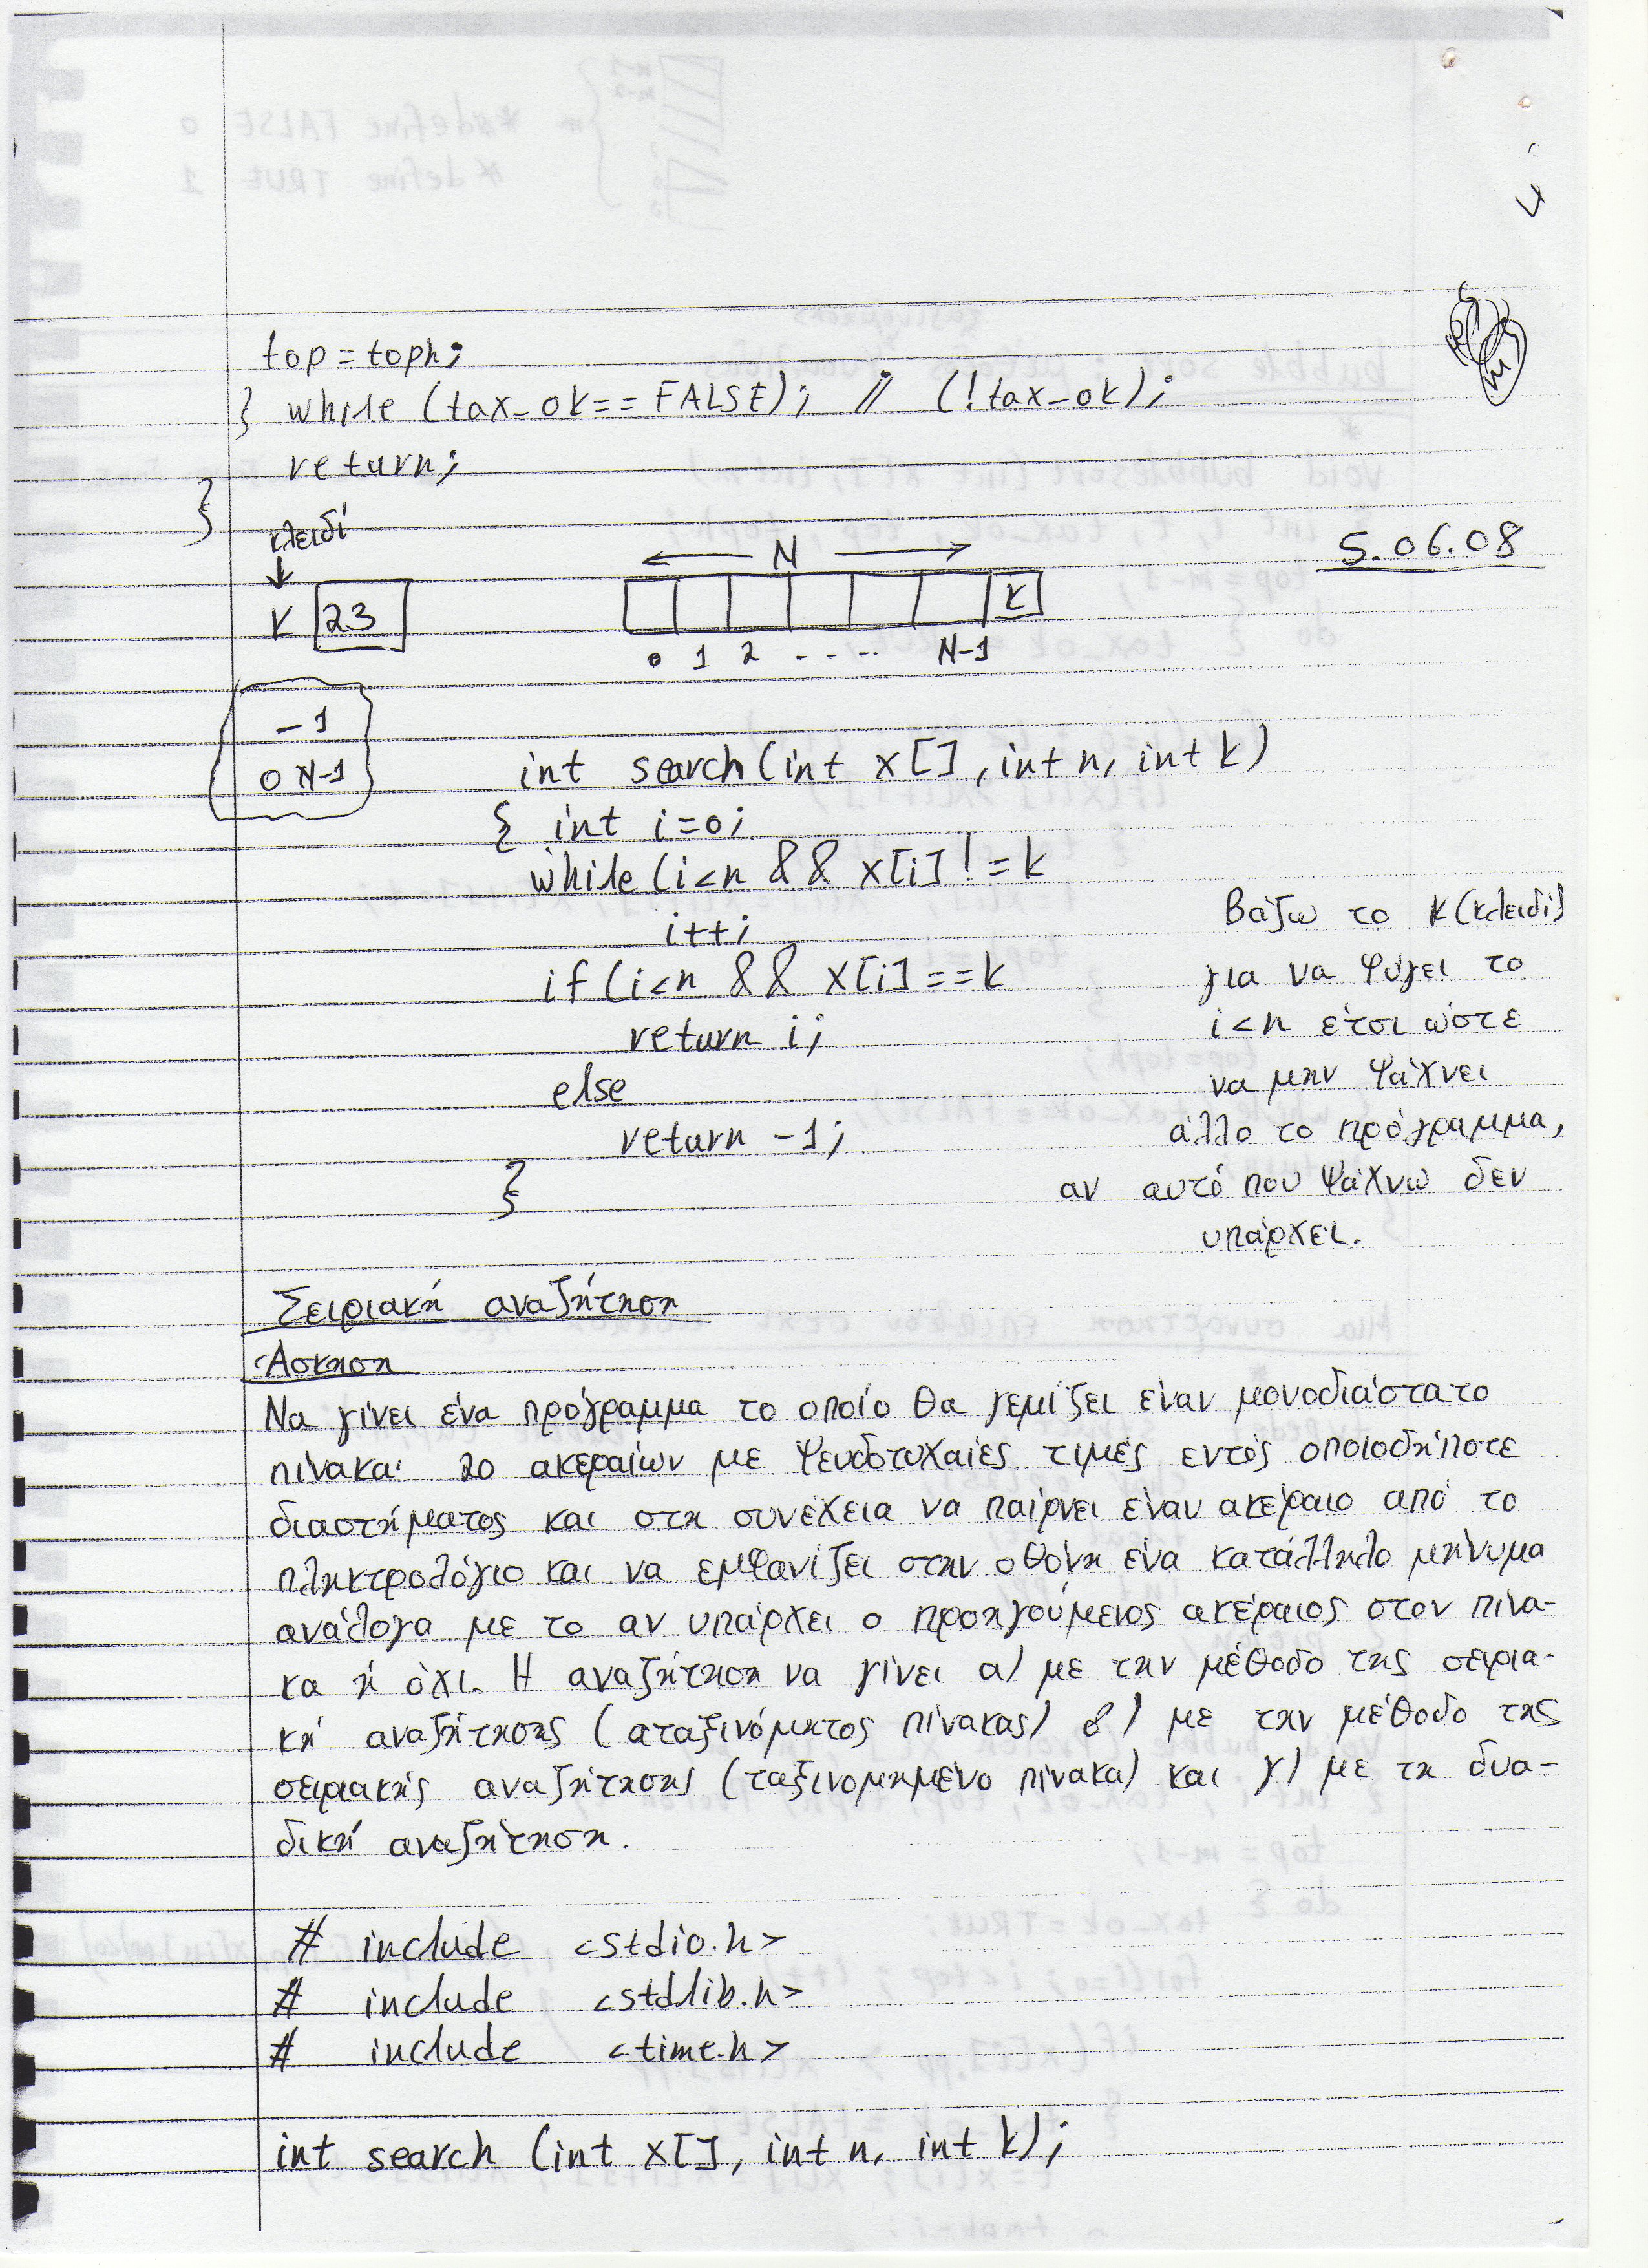 top = toph;
} while (tax_ok == FALSE); // (!tax_ok);
return;
}
κλειδί
N
5.06.08
K 23
K
0 1 2 - - - .. N-1
-1
0 N-1
int search (int x[], int n, int k)
{ int i=0;
while (i<n && x[i] != k
i++;
if (i<n && x[i] == k
return i;
else
return -1;
}
Βάζω το K (κλειδί)
για να φύγει το
i<n έτσι ώστε
να μην ψάχνει
άλλο το πρόγραμμα,
αν αυτό που ψάχνω δεν
υπάρχει.
Σειριακή αναζήτηση
Άσκηση
Να γίνει ένα πρόγραμμα το οποίο θα γεμίζει έναν μονοδιάστατο
πίνακα 20 ακεραίων με ψευδοτυχαίες τιμές εντός οποιοδήποτε
διαστήματος και στη συνέχεια να παίρνει έναν ακέραιο από το
πληκτρολόγιο και να εμφανίζει στην οθόνη ένα κατάλληλο μήνυμα
ανάλογα με το αν υπάρχει ο προηγούμενος ακέραιος στον πίνα-
κα ή όχι. Η αναζήτηση να γίνει α) με την μέθοδο της σειρια-
κή αναζήτησης (αταξινόμητος πίνακας) β) με την μέθοδο της
σειριακής αναζήτησης (ταξινομημένο πίνακα) και γ) με τη δυα-
δική αναζήτηση.
# include <stdio.h>
# include <stdlib.h>
# include <time.h>
int search (int x[], int n, int k);